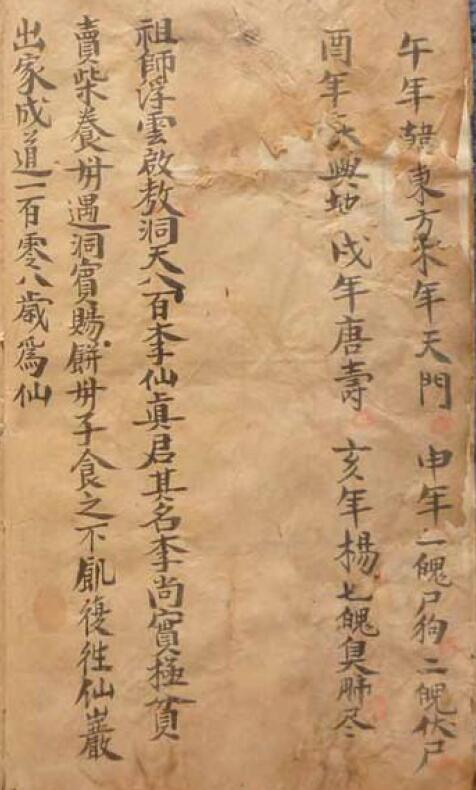 午年韓東方未年天門 申年一魄尸狗二魄伏尸
酉年興地戌年唐壽 亥年楊 七魄臭肺尽
祖師浮雲啟教洞天八百李仙眞君其名李尚實極貧
賣柴養毋遇洞賓賜餅毋子食之不飢復徃仙巖
出家成道一百零八歲爲仙